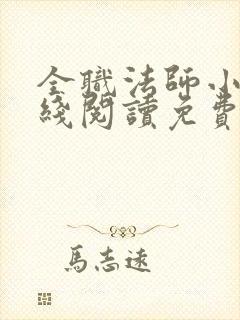 全職法師小
綫閱讀免費
馬志遠